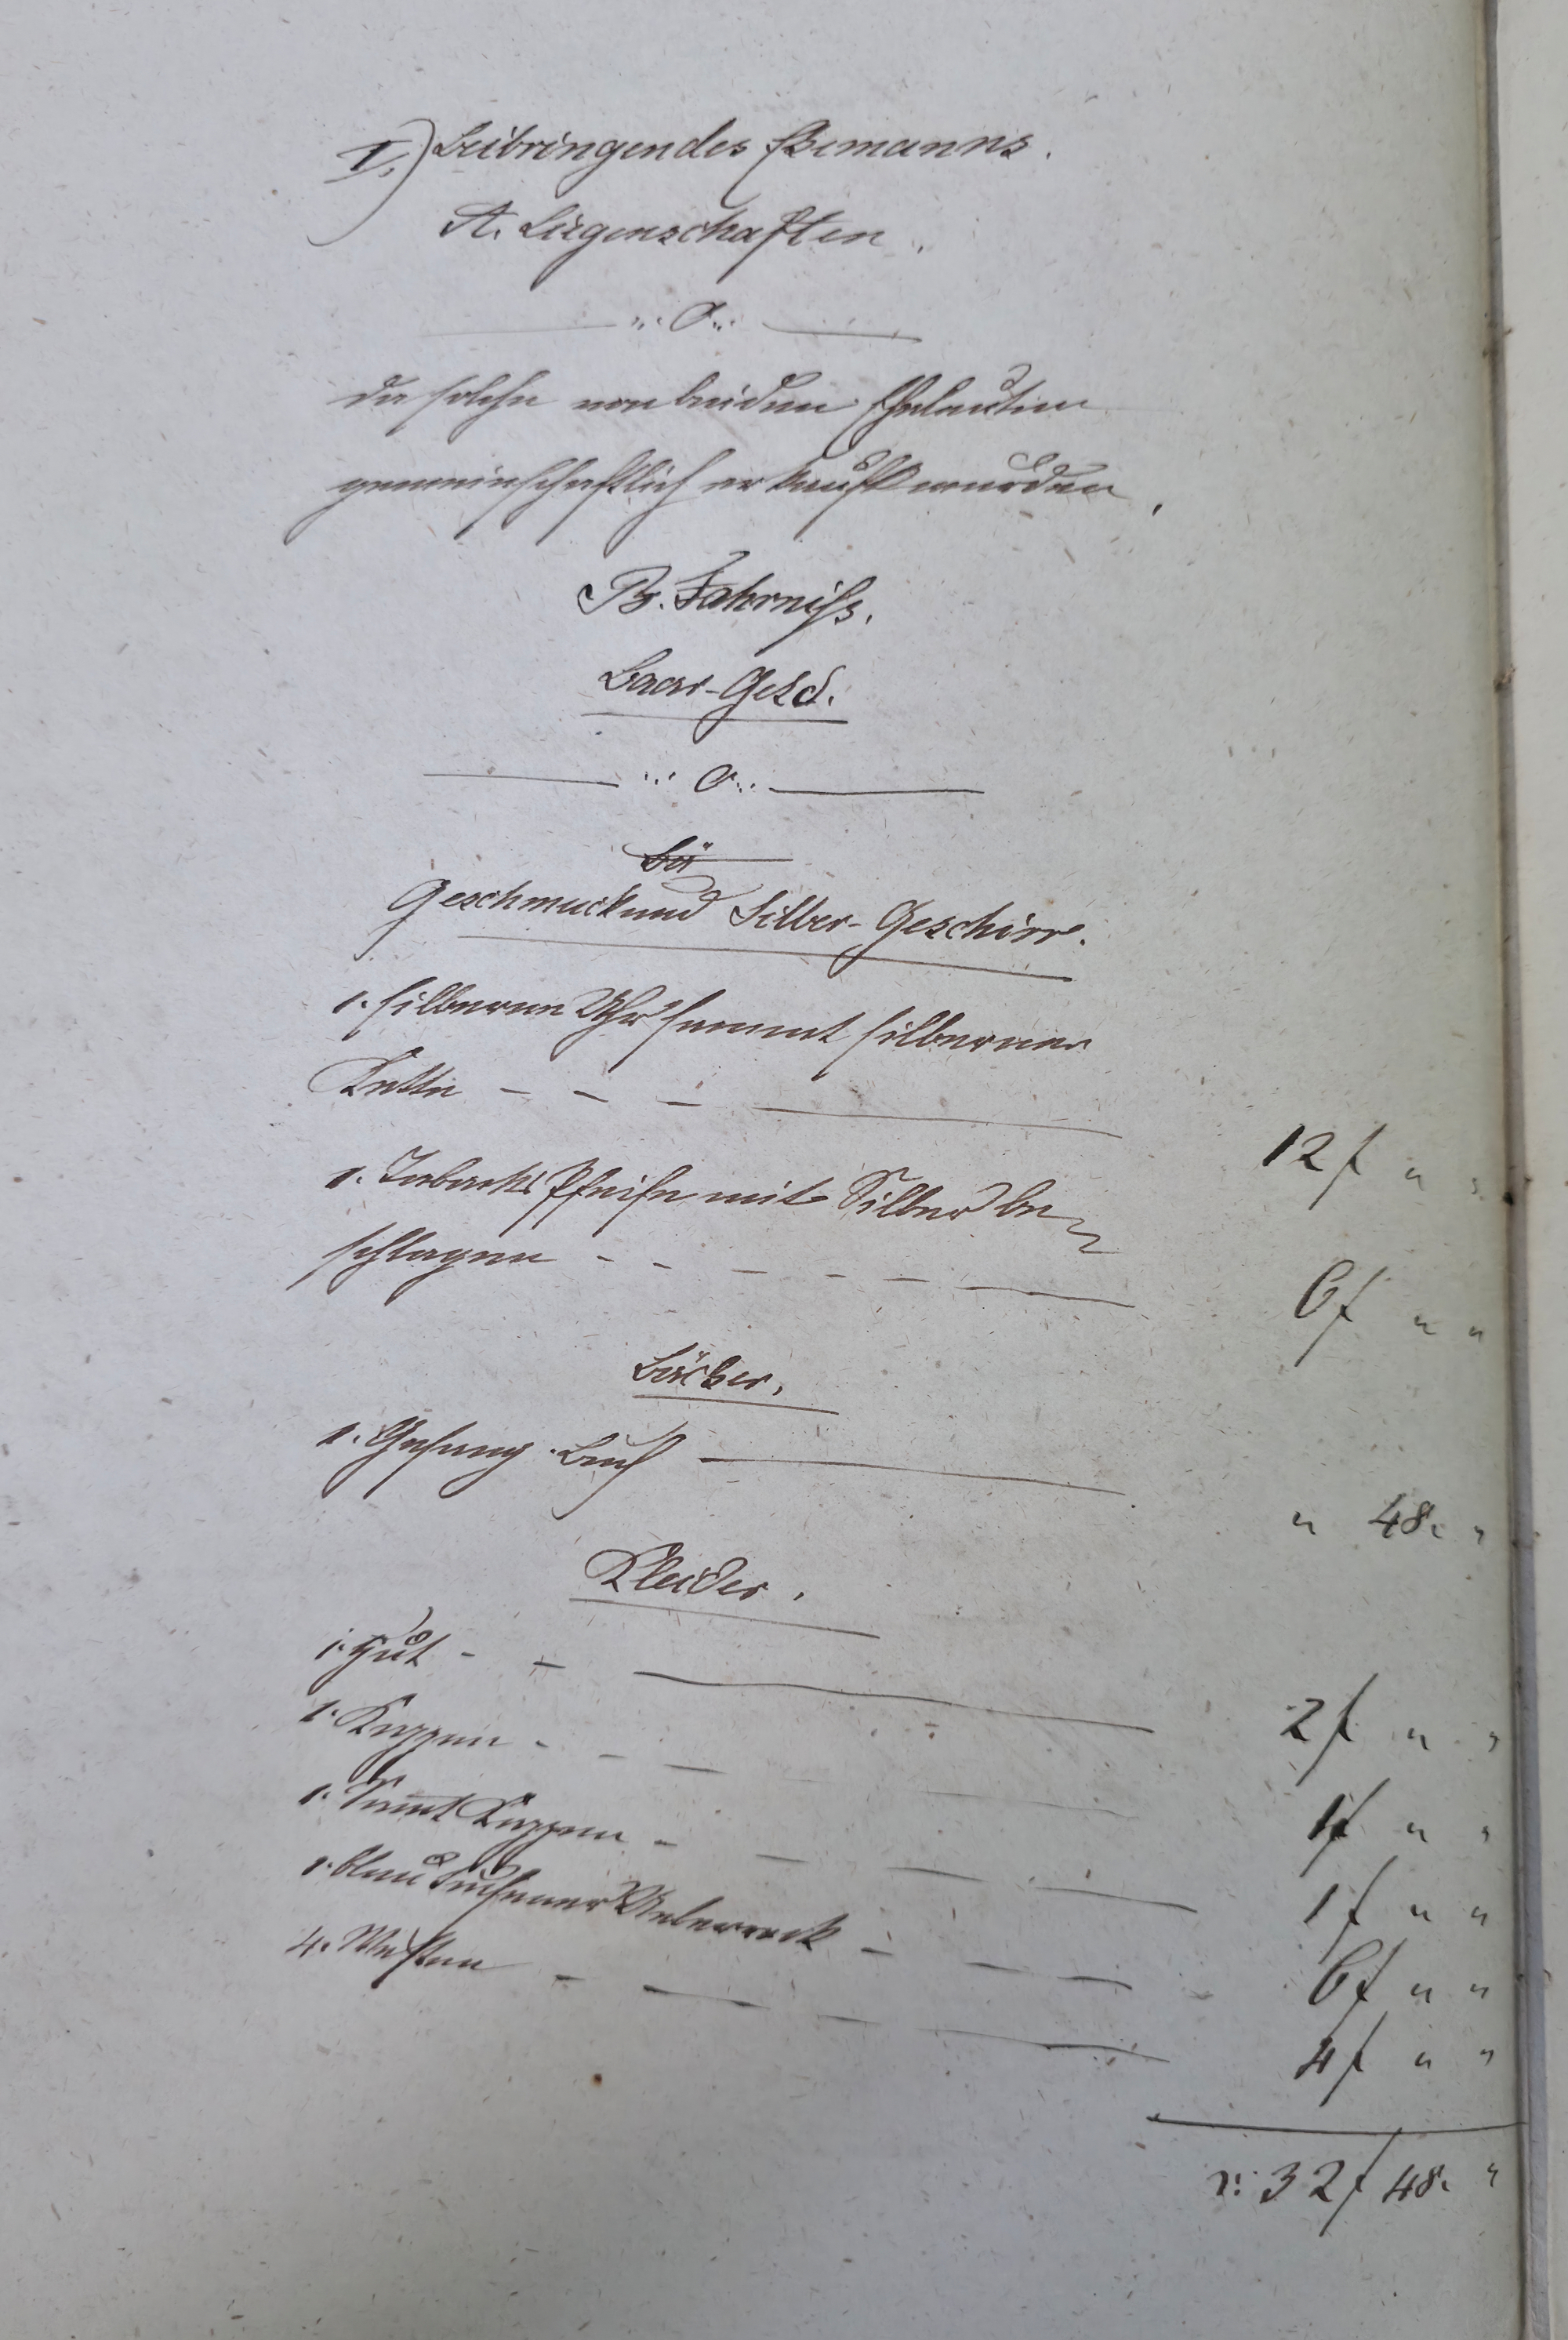 I.) Beibringen des Ehemanns.
A. Liegenschaften.
„ O „
da solche von beiden Eheleuten
gemeinschaftlich erkauft wurden.
B. Fahrniß.
Baar-Geld.
„ O „
Bü
Geschmuck und Silber-Geschirr.
1. silberne Uhr sammt silberner
Kette - - - 12 f „ „
1. Tabacks Pfeife mit Silber be-
schlagen - - - - - 6 f „ „
Bücher.
1. Gesang-Buch „ 48. „
Kleider.
1. Hut - - 2 f „ „
1. Kappen - - - 1 f „ „
1. Samt Kappen - - - 1 f „ „
1. blau tuchener Ueberrock - - - 6 f „ „
4. Westen - - - 4 f „ „
32 f 48. „